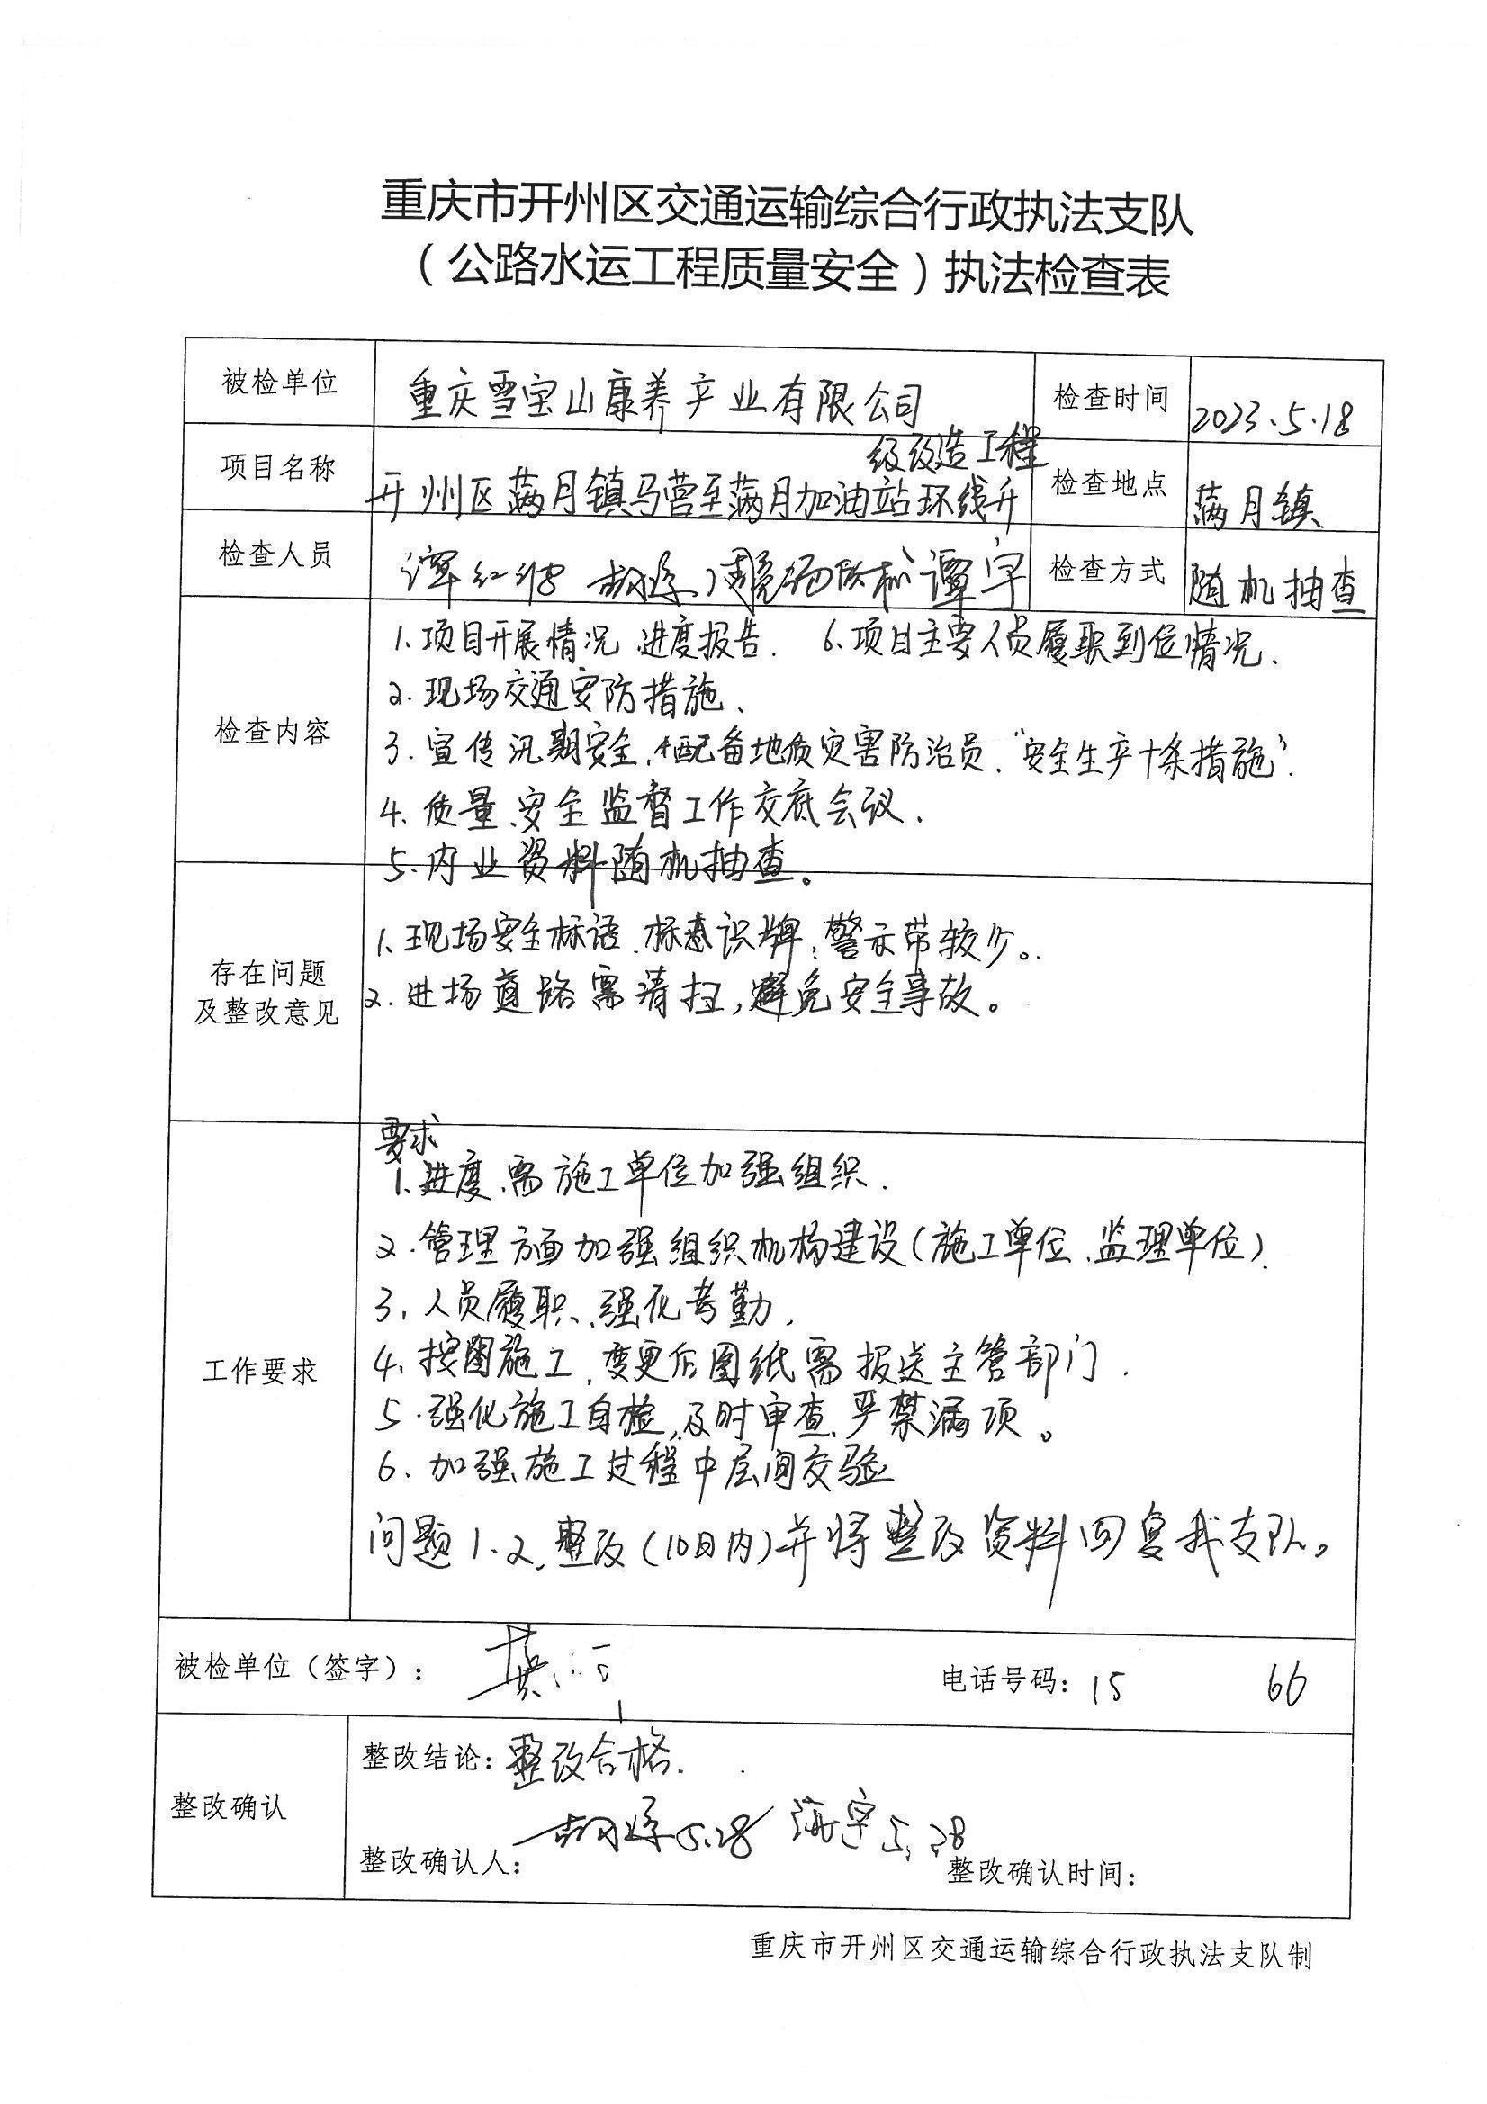 重庆市开州区交通运输综合行政执法支队
（公路水运工程质量安全）执法检查表
被检单位 重庆雪宝山康养产业有限公司 检查时间 2023.5.18
项目名称 开州区满月镇马营至满月加油站环线升级改造工程 检查地点 满月镇
检查人员 谭宇 检查方式 随机抽查
检查内容
1.项目开展情况、进度报告. 6.项目主要人员履职到位情况.
2.现场交通安防措施、
3.宣传汛期安全,配备地质灾害防治员、“安全生产十条措施”.
4.质量、安全监督工作交底会议.
5.内业资料随机抽查。
存在问题
及整改意见
1.现场安全标语、标志识牌、警示带较少。
2.进场道路需清扫,避免安全事故。
工作要求
要求
1.进度、需施工单位加强组织.
2.管理方面加强组织机构建设(施工单位、监理单位)
3.人员履职、强化考勤.
4.按图施工、变更后图纸需报送主管部门.
5.强化施工自检,及时审查、严禁漏项。
6.加强施工过程中层间交验
问题1.2.整改(10日内)并将整改资料回复我支队。
被检单位（签字）： 电话号码：15 66
整改确认
整改结论：整改合格.
5.28 5.28
整改确认人： 整改确认时间：
重庆市开州区交通运输综合行政执法支队制